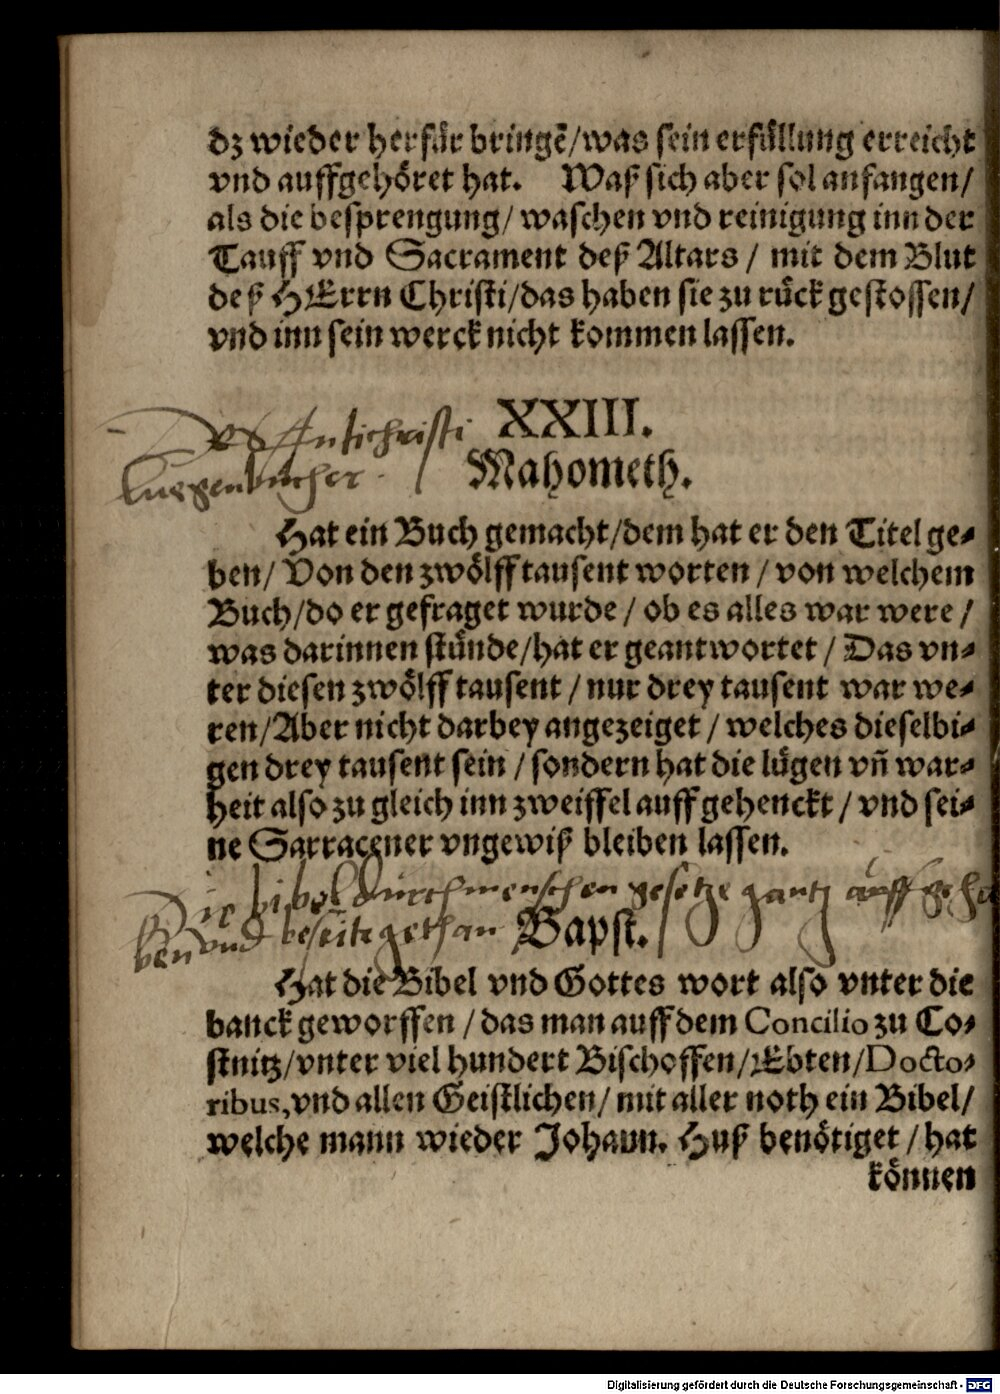 dz wieder herfür bringē/was sein erfüllung erreicht
vnd auffgehöret hat. Waß sich aber sol anfangen/
als die besprengung/ waschen vnd reinigung inn der
Tauff vnd Sacrament deß Altars / mit dem Blut
deß HErrn Christi/das haben sie zu rück gestossen/
vnd inn sein werck nicht kommen lassen.
XXIII.
Des Antichristi
Luegenbucher
Mahometh.
Hat ein Buch gemacht/dem hat er den Titel ge-
ben/ Von den zwölff tausent worten / von welchem
Buch/do er gefraget wurde / ob es alles war were /
was darinnen stünde/hat er geantwortet / Das vn-
ter diesen zwölff tausent / nur drey tausent war we-
ren/Aber nicht darbey angezeiget / welches dieselbi-
gen drey tausent sein / sondern hat die lügen vñ war-
heit also zu gleich inn zweiffel auffgehenckt / vnd sei-
ne Sarracener vngewiß bleiben lassen.
Die bibel durch menschen gesetze gantz auffgeha
ben vnd beseitz gethan
Bapst.
Hat die Bibel vnd Gottes wort also vnter die
banck geworffen / das man auff dem Concilio zu Co-
stnitz/vnter viel hundert Bischoffen/Ebten/Docto-
ribus,vnd allen Geistlichen/ mit aller noth ein Bibel/
welche mann wieder Johann. Huß benötiget / hat
können
Digitalisierung gefördert durch die Deutsche Forschungsgemeinschaft - DFG